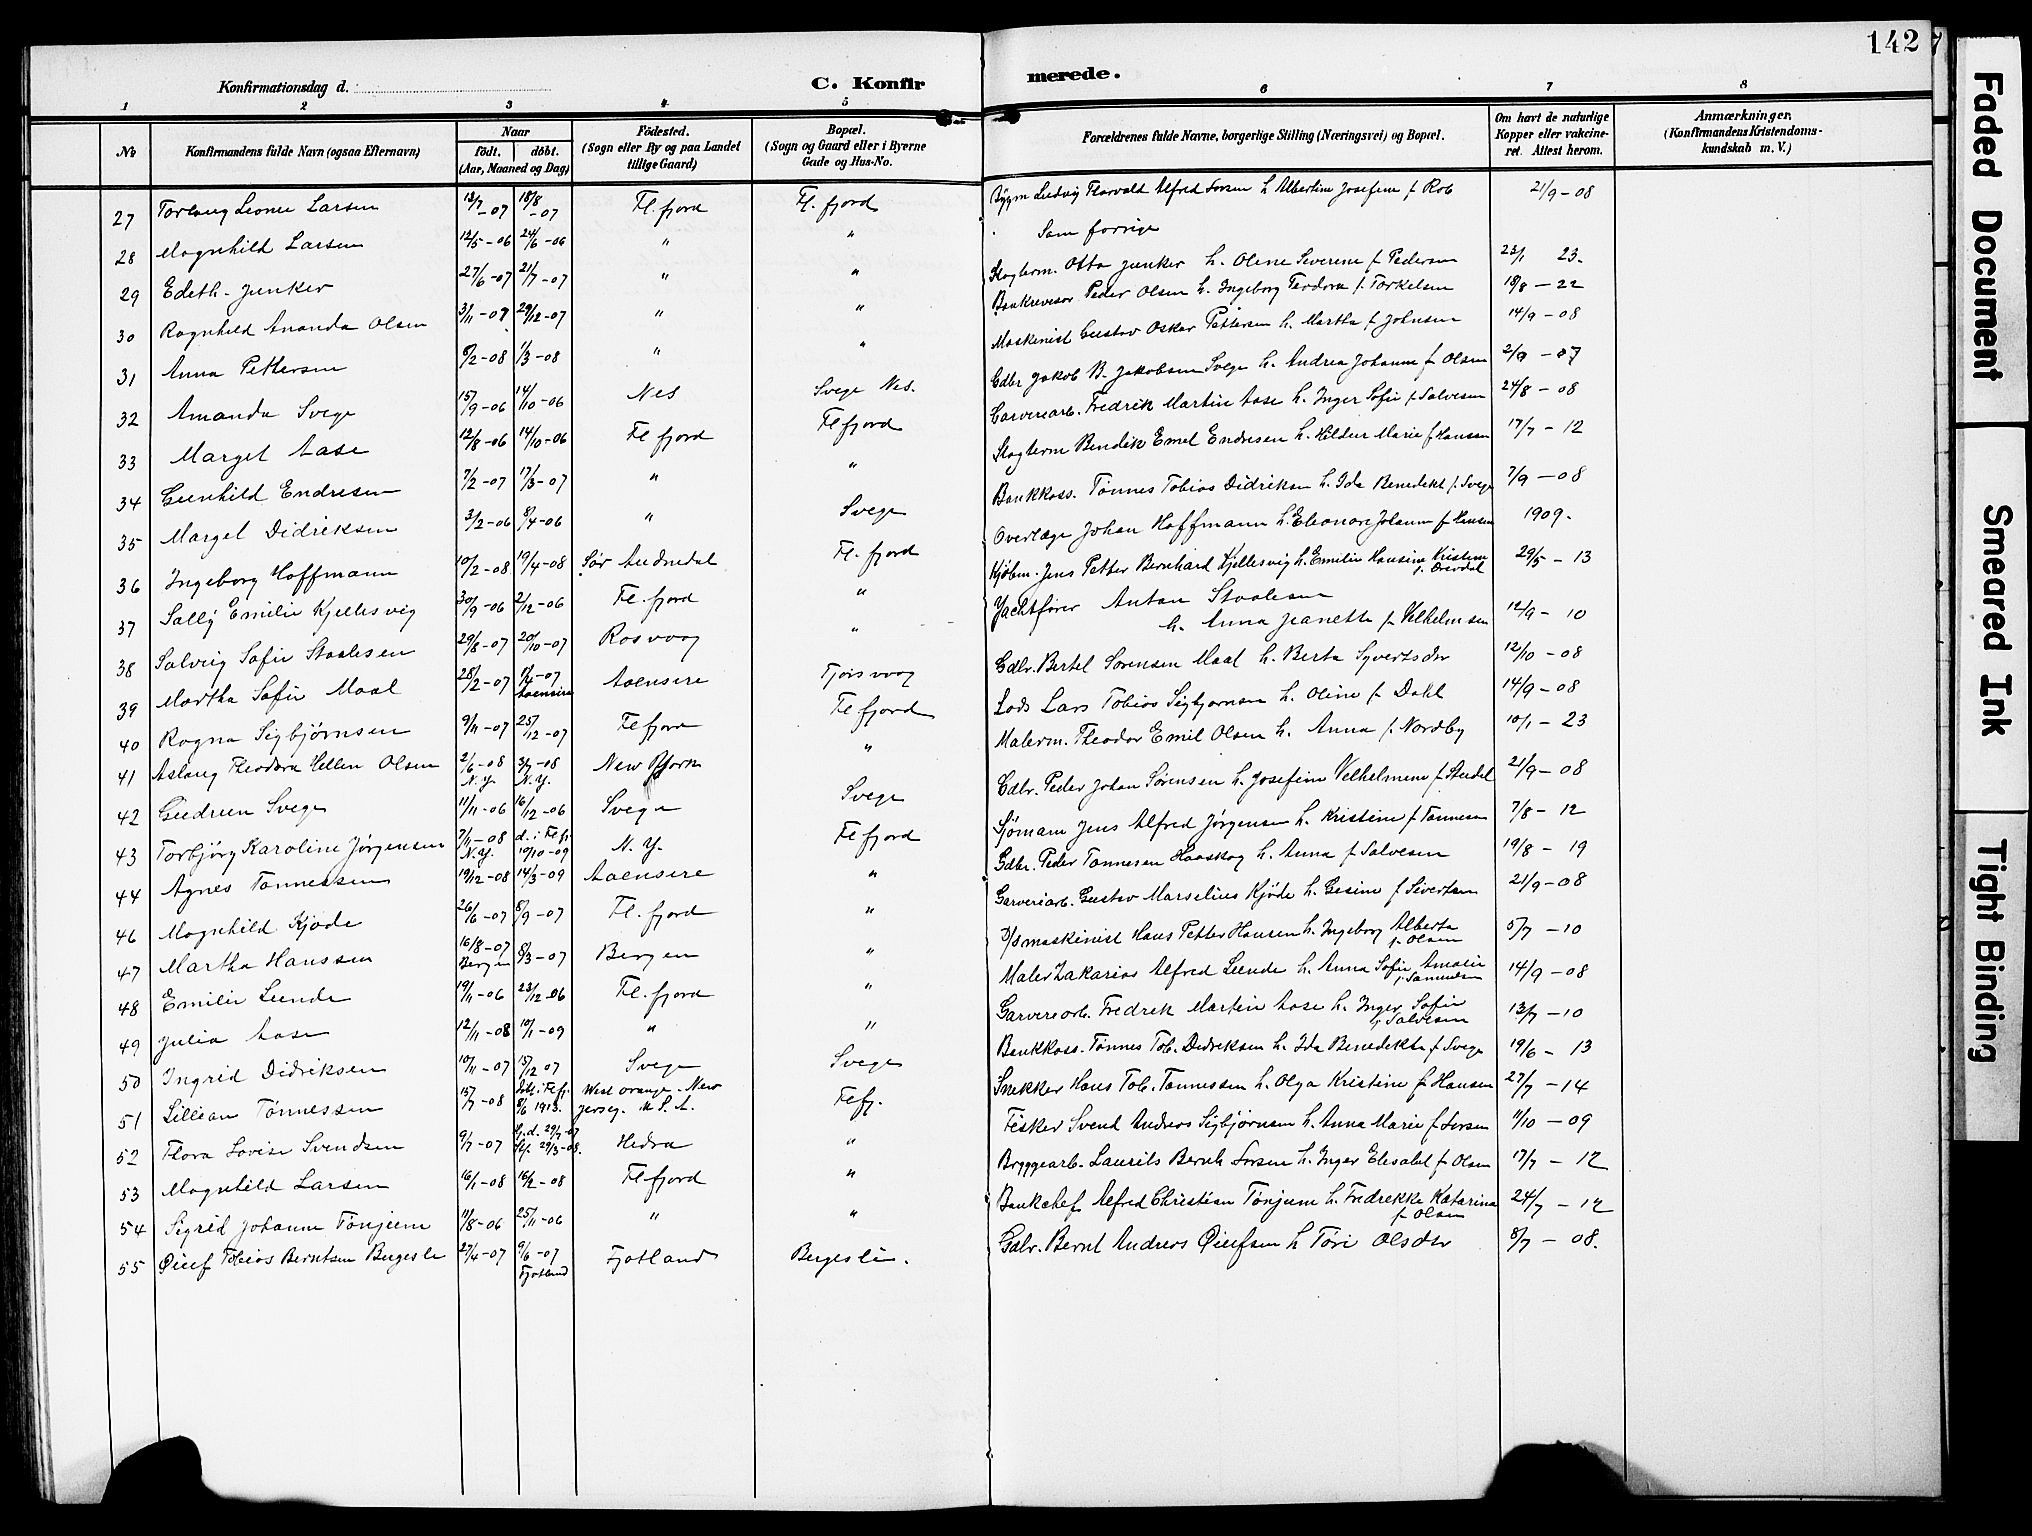 142
Konfirmationsdag d.
C. Konfir
merede.
1 2 3 4 5 6 7 8
No
Konfirmandens fulde Navn (ogsaa Efternavn)
Naar
født. døbt.
(Aar, Maaned og Dag)
Fødested.
(Sogn eller By og paa Landet
tillige Gaard)
Bopæl.
(Sogn og Gaard eller i Byerne
Gade og Hus-No.
Forældrenes fulde Navne, borgerlige Stilling (Næringsvei) og Bopæl.
Om havt de naturlige
Kopper eller vakcine-
ret. Attest herom.
Anmærkninger.
(Konfirmandens Kristendoms-
kundskab m. V.)
27 Torborg Leonie Larsen 13/7-07 18/8-07 Fl. fjord Fl. fjord Ludvig Thorvald Alfred Larsen h. Albertine Josefine f. Rob 21/9-08
28 Magnhild Larsen 12/5-06 24/6-06 " " Som forrige
29 Edeth Junker 27/6-07 21/7-07 " " Slagterm. Otto Junker h. Oline Severine f. Pedersen 23/1 23.
30 Ragnhild Ananda Olsen 3/11-07 29/12-07 " " Bankrevisor Peder Olsen h. Ingeborg Teodora f. Torkelsen 18/8-22
31 Anna Pettersen 8/2-08 1/3-08 " " Maskinist Gustav Oskar Pettersen h. Martha f. Johnsen 14/9-08
32 Amanda Svege 15/9-06 14/10-06 Nes Svege Nes. Gdbr Jakob B. Jakobsen Svege h. Andrea Johanne f. Olsen 2/9-07
33 Marget Aase 12/8-06 14/10-06 Fl fjord Fl fjord Garveriarb. Fredrik Martin Aase h. Inger Sofie f. Salvesen 24/8-08
34 Gunhild Endresen 7/2-07 17/3-07 " " Slagterm Bendik Emel Endresen h. Hildur Marie f Hansen 17/7-12
35 Marget Didriksen 3/2-06 8/4-06 " Svege Bankkass. Tønnes Tobias Didriksen h. Ida Benedikt f. Svege 7/9-08
36 Ingeborg Hoffmann 10/2-08 19/4-08 Sør Audnedal Fl. fjord Overlæge Johan Hoffmann h. Eleonore Johanne f Hansen 1909.
37 Sally Emilie Kjellesvig 30/9-06 2/12-06 Fl. fjord " Kjøbm. Jens Petter Bernhard Kjellesvig h. Emilie Hansine Kristine 29/5-13
38 Solveig Sofie Staalesen 29/8-07 20/10-07 Rosvaag " Yachtfører Anton Staalesen
h. Anna Jeanette f Vilhelmsen 12/9-10
39 Martha Sofie Maal 28/2-07 1/4-07 Aaensire Aaensire Tjørsvaag Gdbr. Bertel Sørensen Maal h. Berta Syvertsdtr 12/10-08
40 Ragna Sigbjørnsen 9/11-07 25/12-07 Fl fjord Fl fjord Lods Lars Tobias Sigbjørnsen h. Oline f. Dahl 14/9-08
41 Aslaug Theodora Hellen Olsen 2/6-08 N.Y. 3/7-08 N.Y. New York " Malerm. Theodor Emil Olsen h. Anna f. Nordby 10/1-23
42 Gudrun Svege 11/11-06 16/12-06 Svege Svege Gdbr. Peder Johan Sørensen h. Josefine Vilhelmine f 21/9-08
43 Torbjørg Karoline Jørgensen 7/11-08 N.Y. d. i Fl fj. 10/10-09 N.Y. Fl fjord Sjømann Jens Alfred Jørgensen h. Kristine f Tønnesen 7/8-12
44 Agnes Tønnessen 19/12-08 14/3-09 Aaensire " Gdbr. Peder Tønnesen Haaskog h. Anna f. Salvesen 19/8-19
46 Magnhild Kjøde 26/6-07 8/9-07 Fl. fjord " Garveriarb. Gustav Marselius Kjøde h. Gesine f Sivertsen 21/9-08
47 Martha Hanssen 16/8-07 Bergen 8/3-07 Bergen " D/S maskinist Hans Petter Hansen h. Ingeborg Alberta
f. Olsen 5/7-10
48 Emilie Lunde 19/11-06 23/12-06 Fl. fjord " Maler Zakarias Alfred Lunde h. Anna Sofie Amalie
f. Samuelsen 14/9-08
49 Julia Aase 12/11-08 10/1-09 " " Garveriarb. Fredrik Martin Aase h. Inger Sofie
f. Salvesen 13/7-10
50 Ingrid Didriksen 10/11-07 15/12 07 Svege Svege Bankkass. Tønnes Tob. Didriksen h. Ida Benedikte f Svege 19/6-13
51 Lillian Tønnessen 15/7-08 Døbt i Fl fj. 8/6 1913. West Orange. New
Jersey. U.S.A. Fl fj. Snekker Hans Tob. Tønnessen h. Olga Kristine f Hansen 27/7-14
52 Flora Lovise Svendsen 9/7-07 Hj. d. 29/7-07 Stf. 29/3-08. Hidra " Fisker Svend Andreas Sigbjørnsen h. Anna Marie f Larsen 11/10-09
53 Magnhild Larsen 16/1-08 16/2-08 Fl fjord " Bryggearb. Laurits Bernh Larsen h. Inger Elisabet f. Olsen 17/7-12
54 Sigrid Johanne Tønjum 11/8-06 25/11-06 " " Bankchef Alfred Christian Tønjum h. Fredrikke Katarina
f. Olsen 24/7-12
55 Øiuf Tobias Berntsen Bergesli 27/4-07 9/6-07 Fjotland Fjotland Bergesli. Gdbr. Bernt Andreas Øiufsen h Tøri Olsdtr 8/7-08.
Faded Document
Smeared Ink
Tight Binding